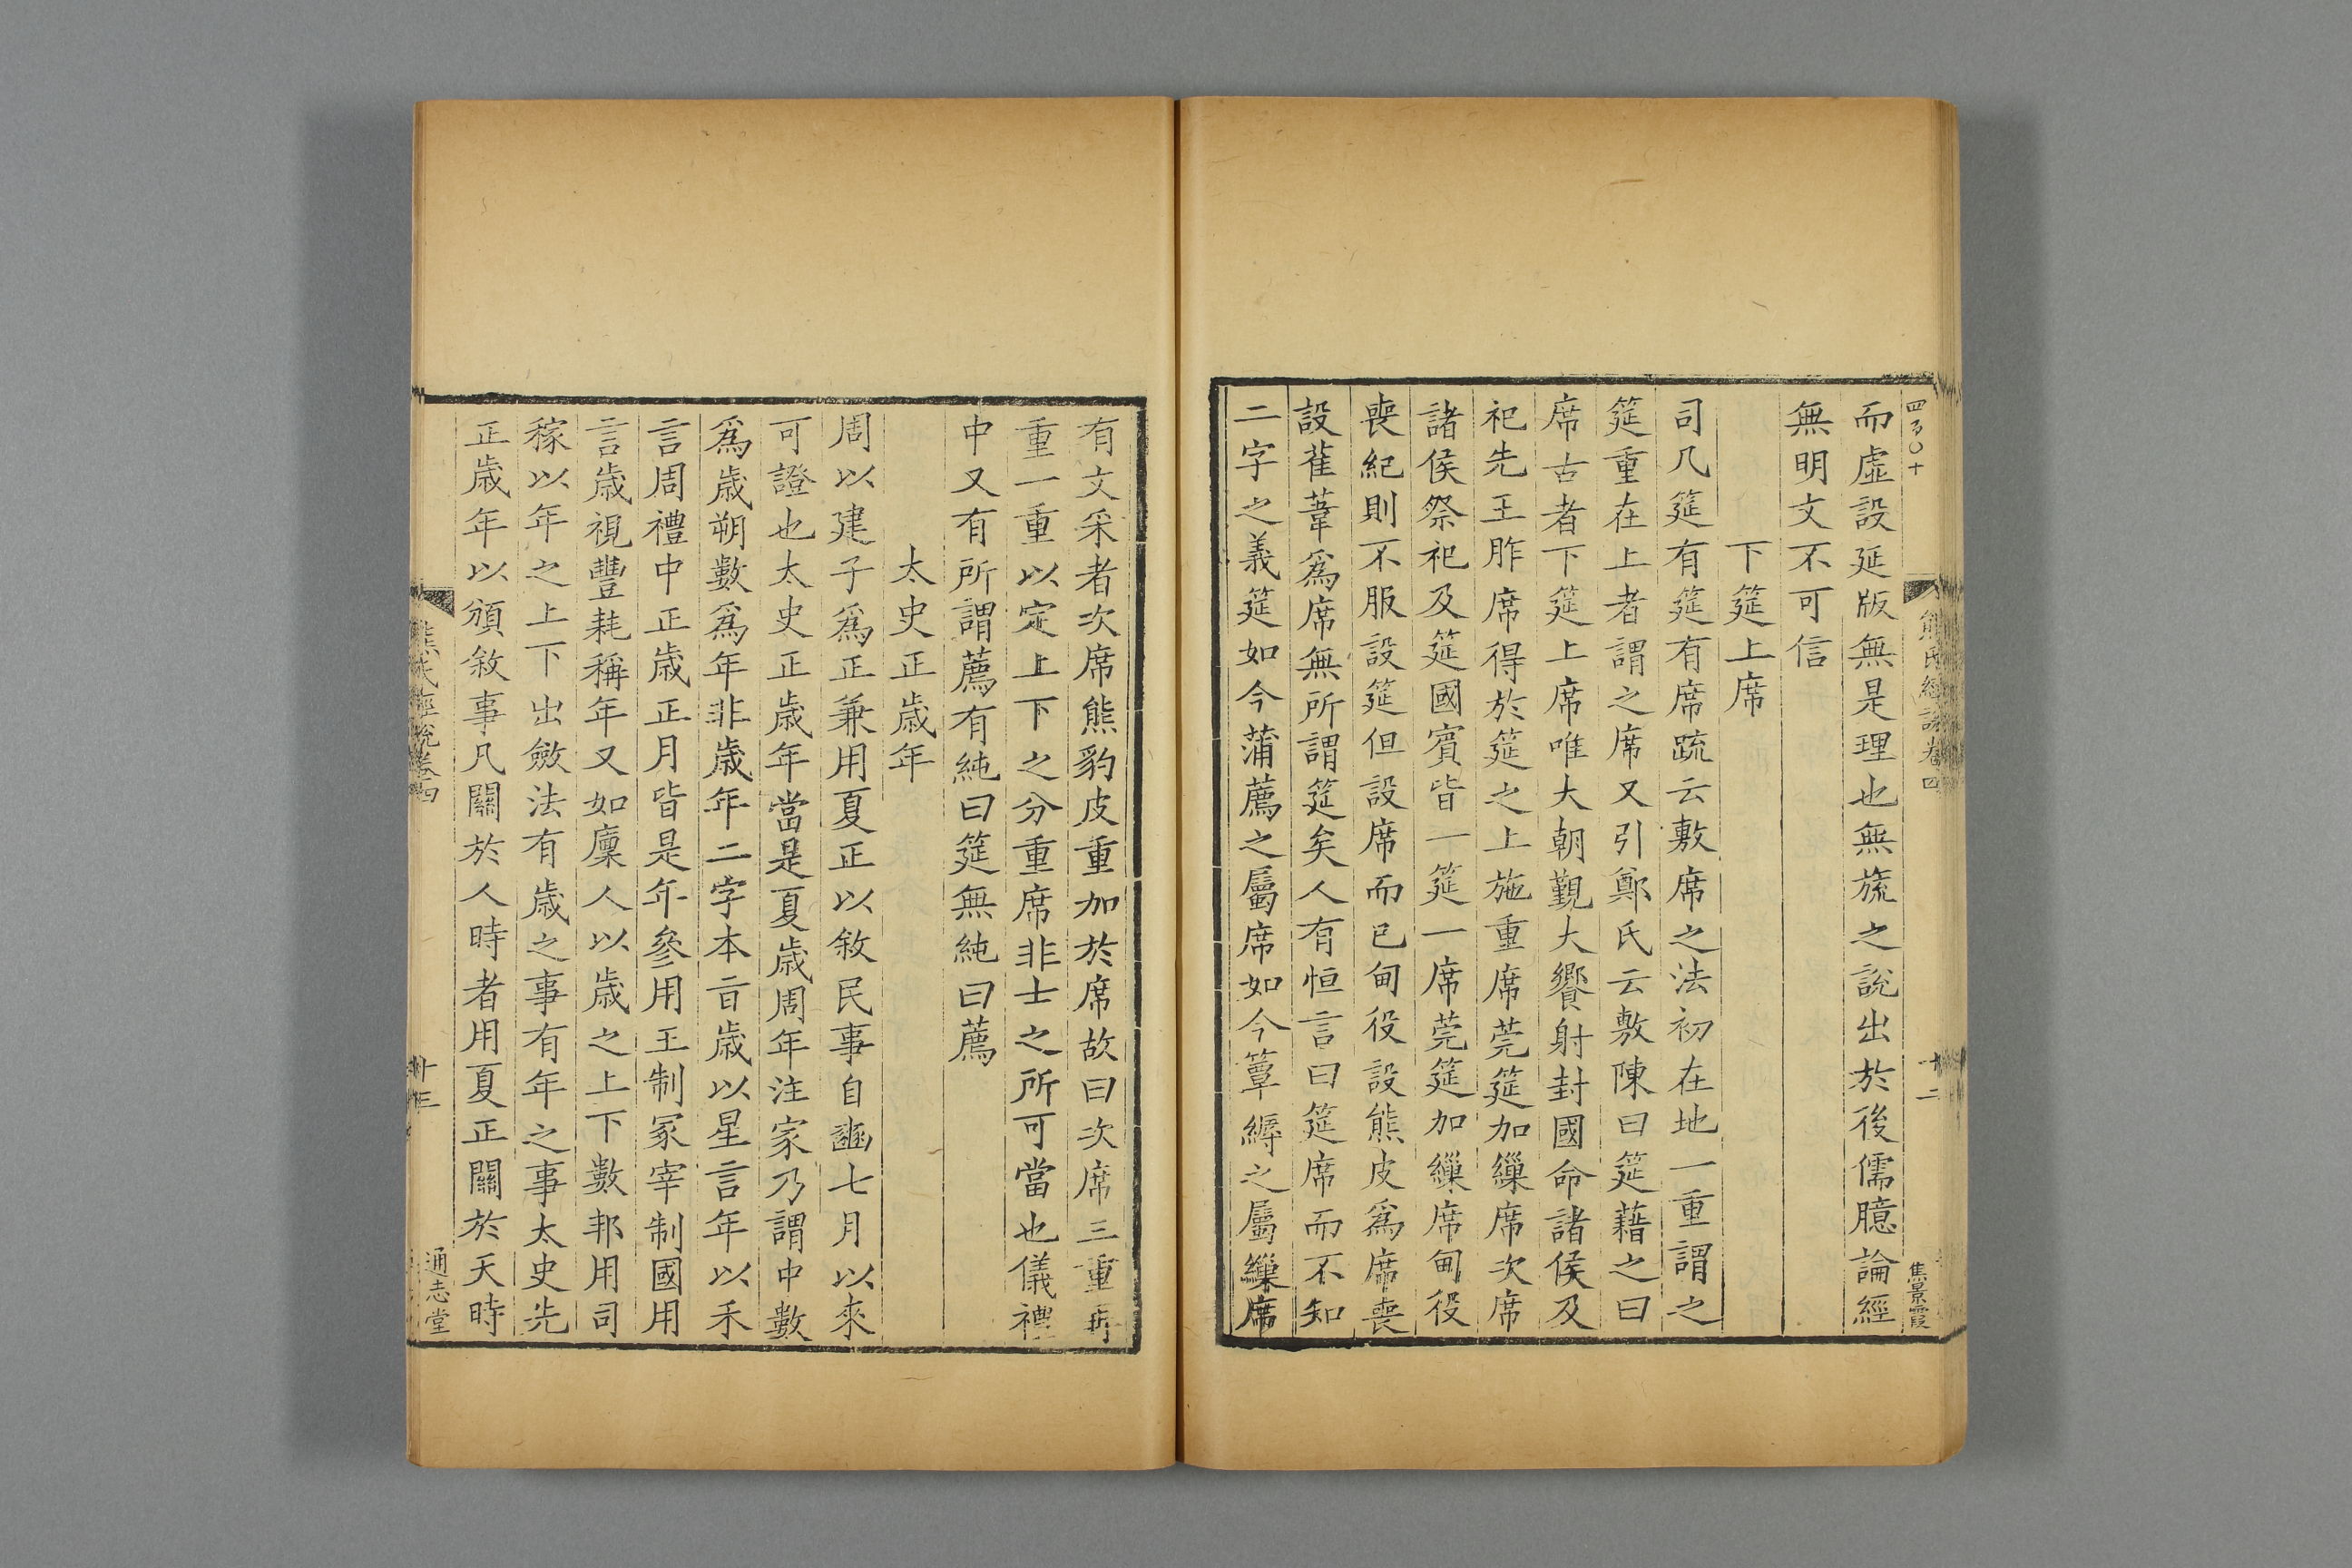 而虛設延版無是理也無旒之說出於後儒臆論經
無明文不可信
下筵上席
司几筵有筵有席疏云敷席之法初在地一重謂之
筵重在上者謂之席又引鄭氏云敷陳曰筵藉之曰
席古者下筵上席唯大朝覲大饗射封國命諸侯及
祀先王胙席得於筵之上施重席莞筵加繅席次席
諸侯祭祀及筵國賓皆一筵一席莞筵加繅席甸役
喪紀則不服設筵但設席而已甸役設熊皮爲席喪
設萑葦爲席無所謂筵矣人有恒言曰筵席而不知
二字之義筵如今蒲薦之屬席如今簟縟之屬繅席
焦景霞
十二
有文采者次席熊豹皮重加於席故曰次席三重再
重一重以定上下之分重席非士之所可當也儀禮
中又有所謂薦有純曰筵無純曰薦
太史正歲年
周以建子爲正兼用夏正以敘民事自豳七月以來
可證也太史正歲年當是夏歲周年注家乃謂中數
爲歲朔數爲年非歲年二字本旨歲以星言年以禾
言周禮中正歲正月皆是年參用王制冢宰制國用
言歲視豐耗稱年又如廩人以歲之上下數邦用司
稼以年之上下出斂法有歲之事有年之事太史先
正歲年以頒敘事凡關於人時者用夏正關於天時
熊氏經說卷四
十三
通志堂